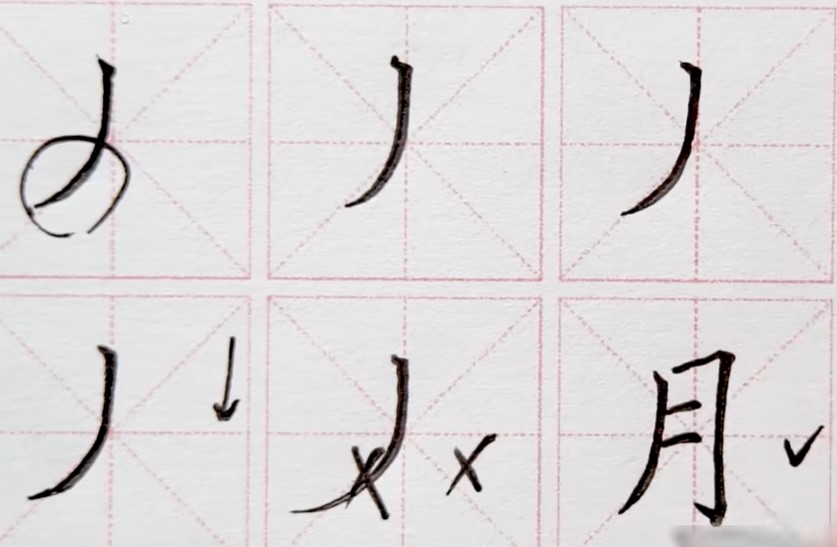 丿 丿 丿
丿 丿 月